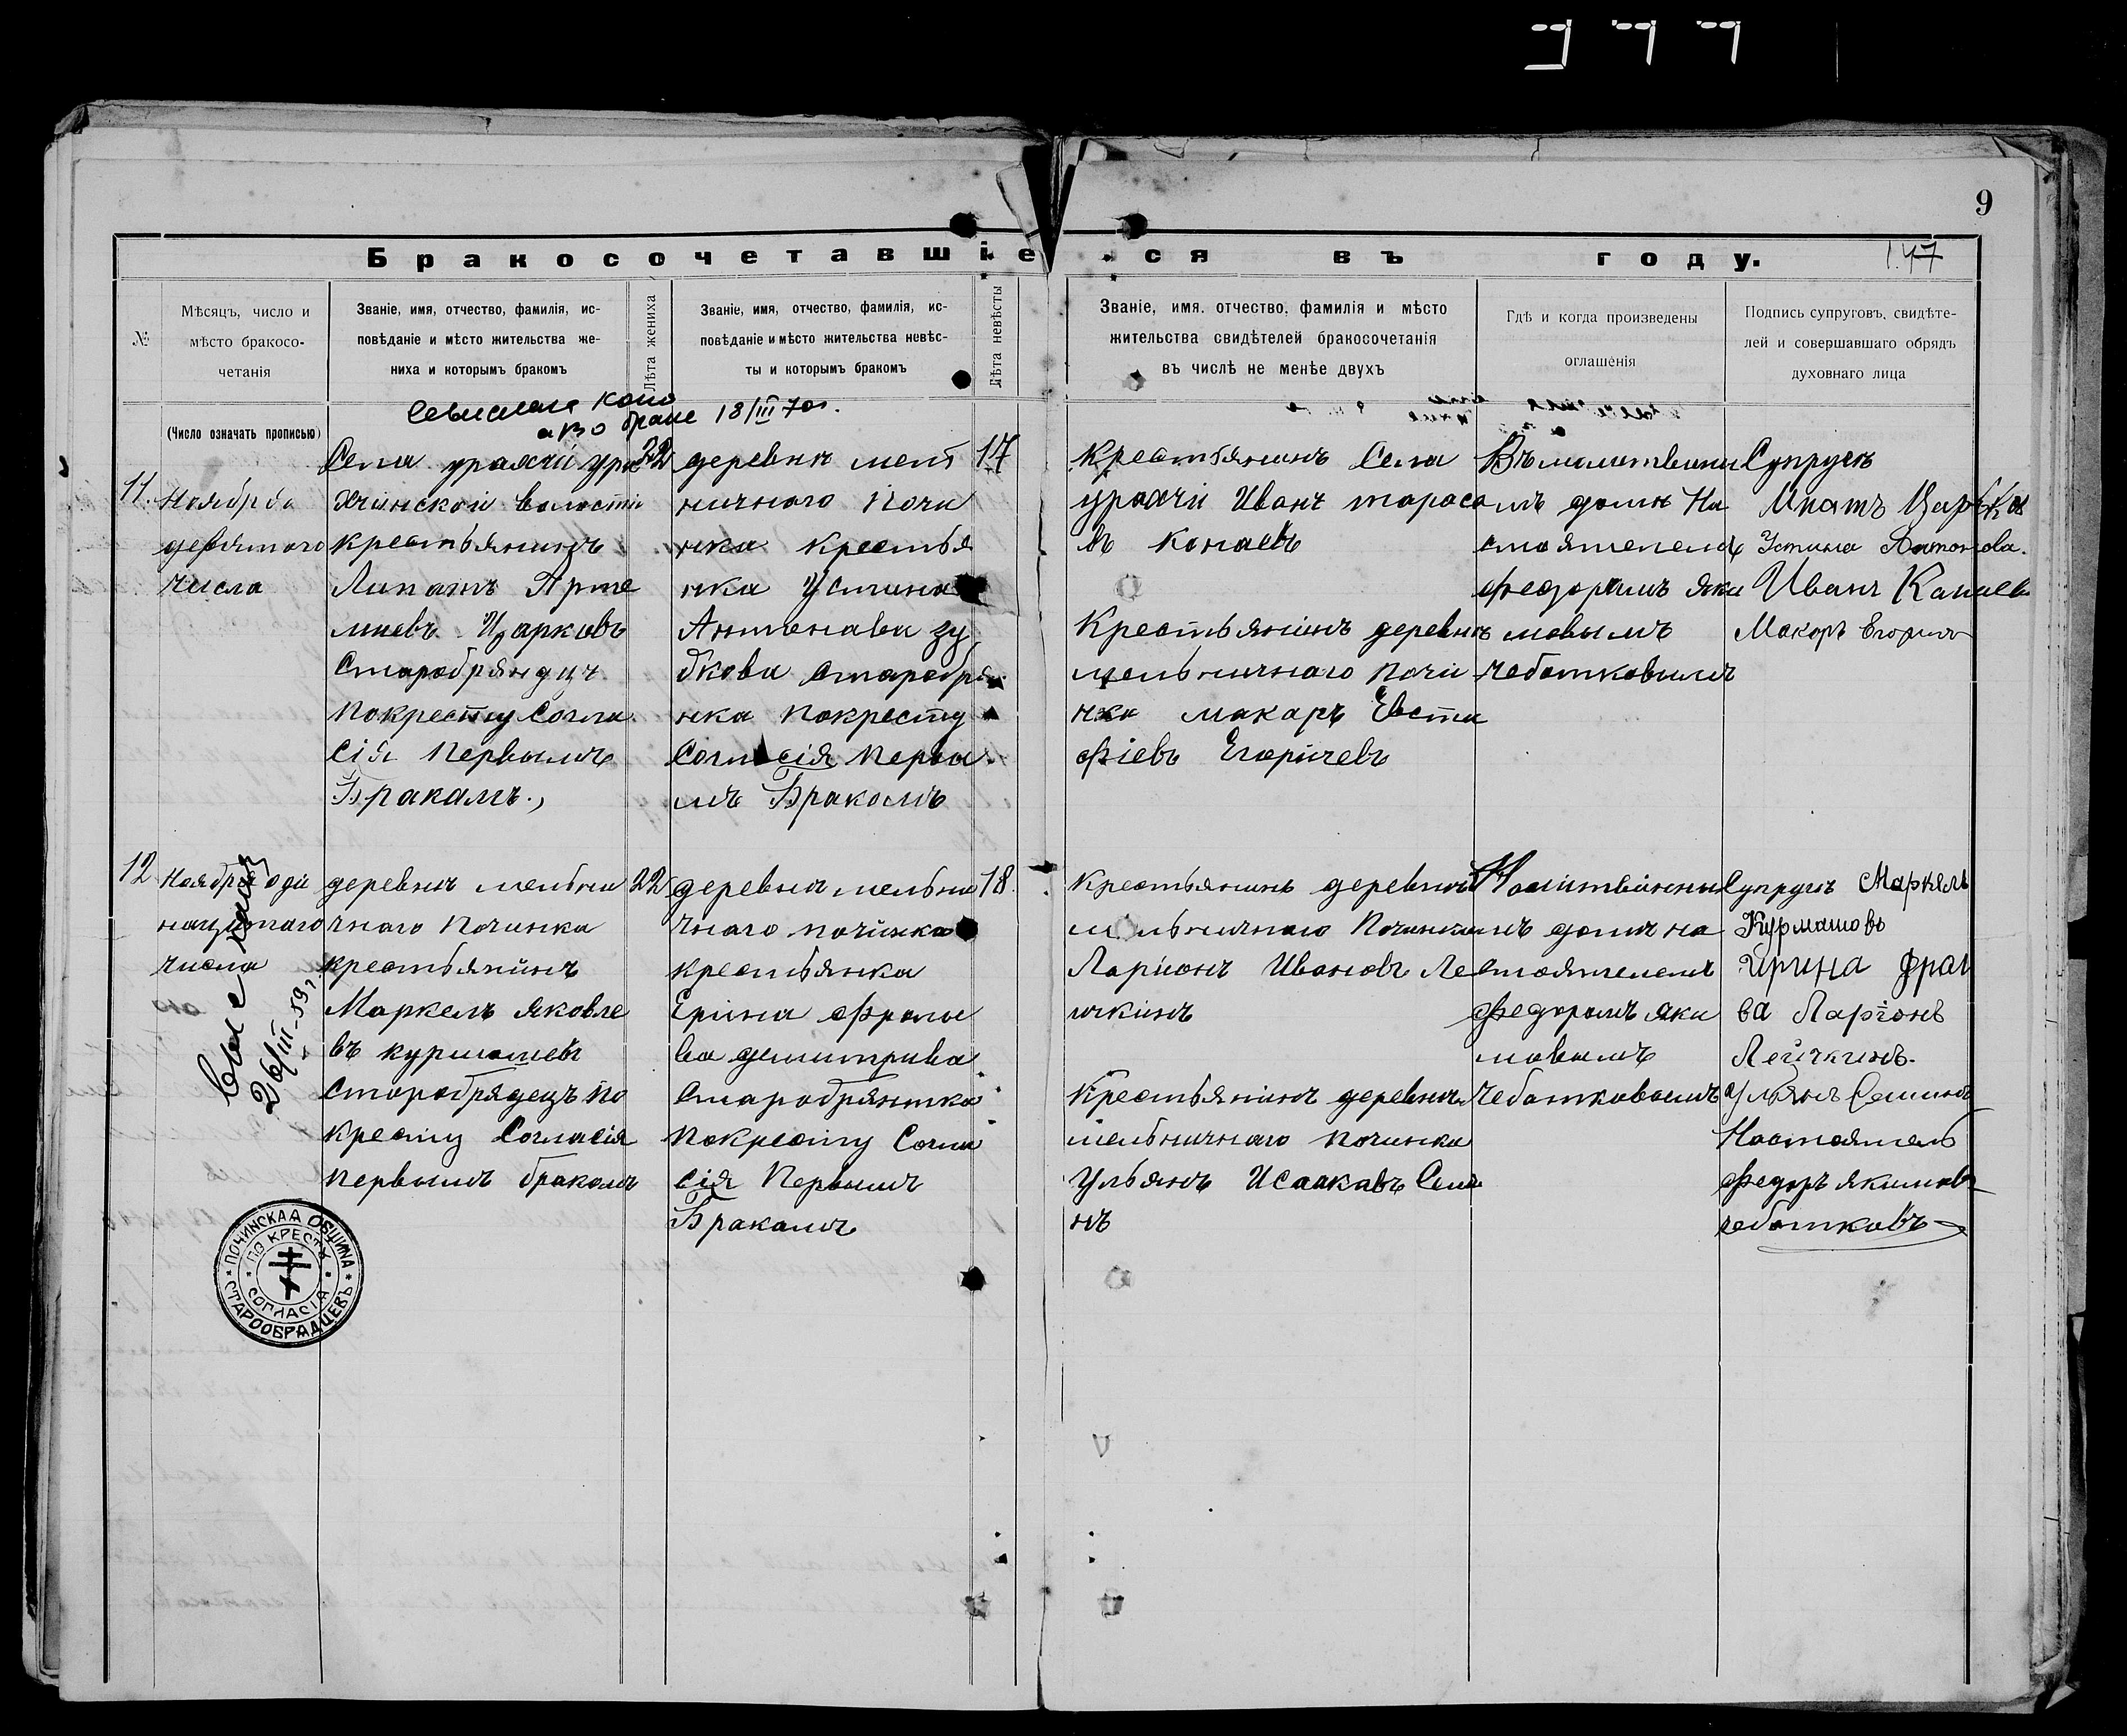 9
Бракосочетавшіеся въ году.
147
№
Мѣсяцъ, число и
мѣсто бракосо-
четанія
(Число означать прописью)
Званіе, имя, отчество, фамилія, ис-
повѣданіе и мѣсто жительства же-
ниха и которымъ бракомъ
Лѣта жениха
Званіе, имя, отчество, фамилія, ис-
повѣданіе и мѣсто жительства невѣс-
ты и которымъ бракомъ
Лѣта невѣсты
Званіе, имя, отчество, фамилія и мѣсто
жительства свидѣтелей бракосочетанія
въ числѣ не менѣе двухъ
Гдѣ и когда произведены
оглашенія
Подпись супруговъ, свидѣте-
лей и совершавшаго обрядъ
духовнаго лица
о браке 18/III 70г.
11.
Ноября
девятого
числа
Села урахчи ура
хчинской волости
крестьянинъ
Липатъ Арте
миевъ Царковъ
Старобрядцъ
покресту Согла
сія Первымъ
Бракамъ.
22
деревни мел
ничного Почи
нка крестья
нка Устина
Антонава зу
бкова Старобря
нка покресту
Согласія Первы
мъ Бракомъ
17
Крестьянинъ Села
урахчи Иванъ тарасо
въ конаевъ
Крестьянинъ деревни
мельничнаго почи
нка макаръ Евста
фіевъ Егорічевъ
Въ молитвини
мъ доми На
стаятелемъ
федорамъ яки
мовымъ
чеботковымъ
Супруги
Устина Антонова.
Иванъ Канаев
Макоръ
12
Ноября оди
нацатаго
числа
26/III-59г.
деревни мельни
чнаго Починка
крестьянинъ
Маркелъ яковле
въ курмашевъ
Старобрядецъ по
кресту Согласія
первымъ бракомъ
22
деревни мельни
чнаго починка
крестьянка
Еріна фроло
ва демитрива
Старобрянтка
покресту Согла
сія Первымъ
Бракамъ
18.
Крестьянинъ деревни
мельничнаго Починка
Ларіонъ Ивановъ Ле
ичкинъ
Крестьянинъ деревни
мельничнаго починка
Ульянъ Исаакавъ Семи
нъ
Молитвинны
мъ доми на
стоятелемъ
федорамъ яки
мовымъ
Чеботковымъ
Супруги Маркелъ
Курмашовъ
Ирина фрал
ва Ларіонъ
Леичкинъ.
Ульянъ Семинъ
Настоятель
федоръ якимовъ
чеботковъ
ПОЧИНСКАЯ ОБЩИНА
СТАРООБРЯДЦЕВЪ
ПО КРЕСТУ
СОГЛАСІЯ